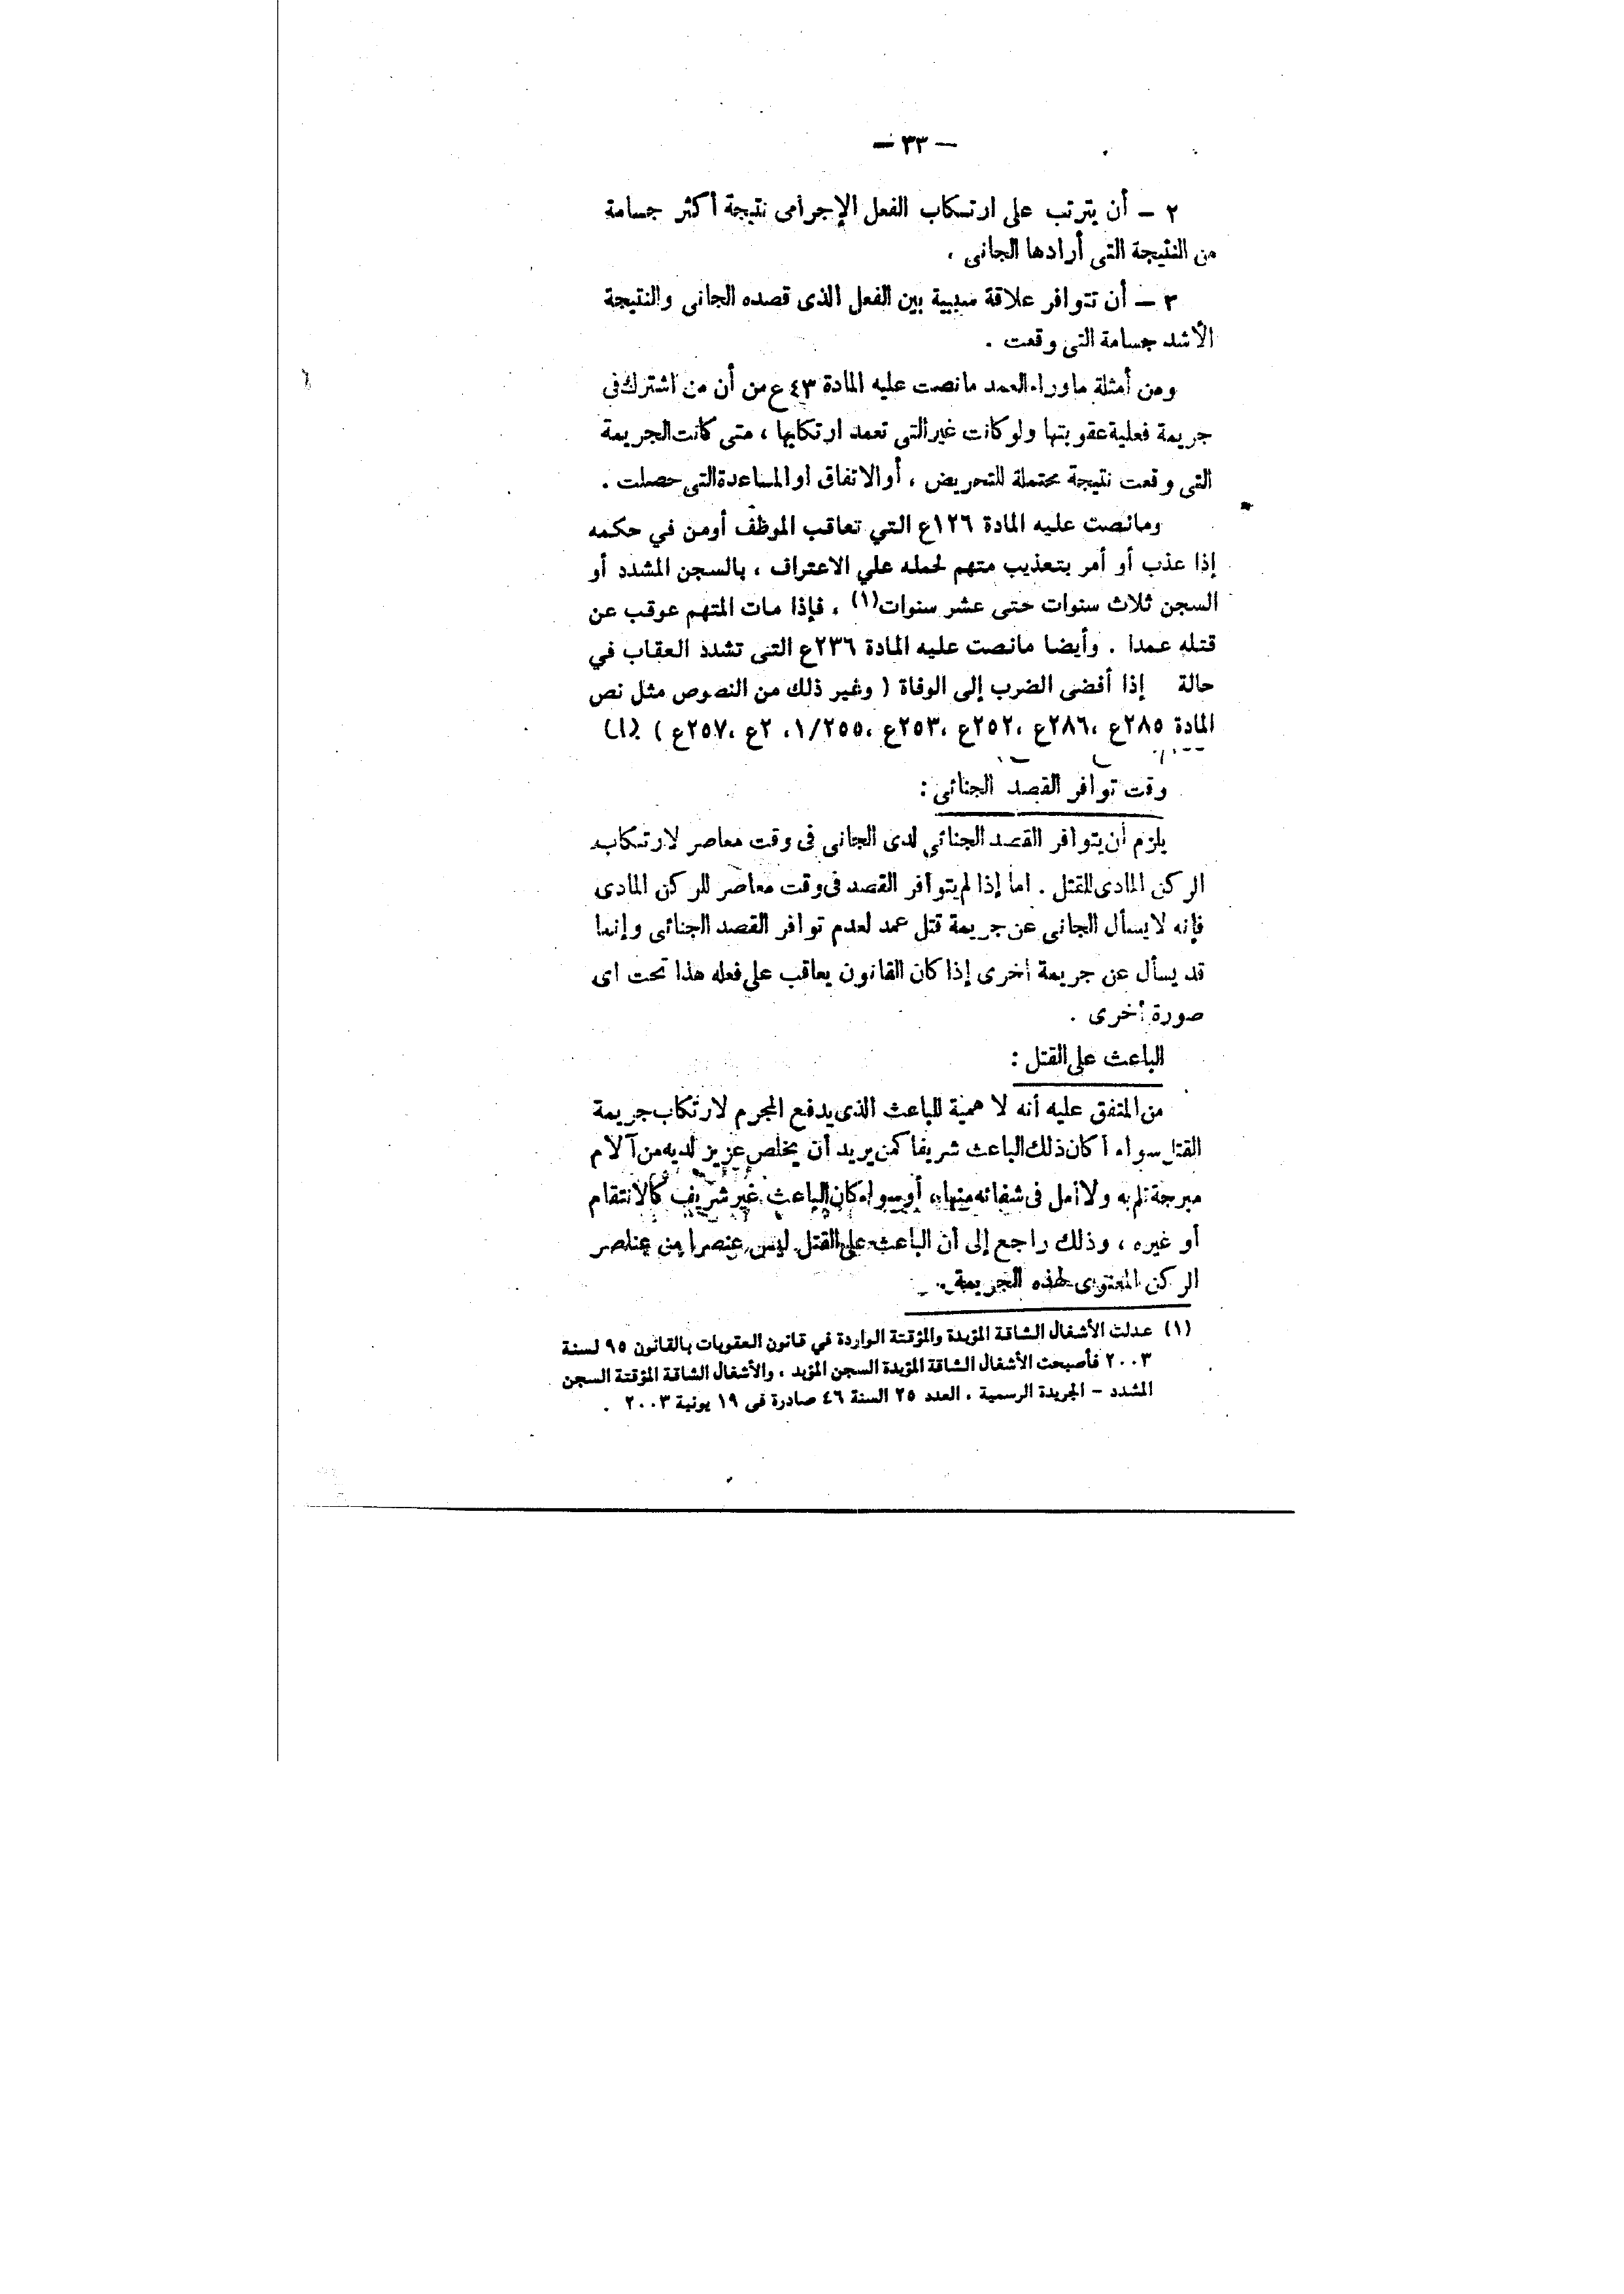 — ٣٣ —
٢ — أن يترتب على ارتكاب الفعل الإجرامى نتيجة أكثر جسامة
من النتيجة التى أرادها الجانى .
٣ — أن تتوافر علاقة سببية بين الفعل الذى قصده الجانى والنتيجة
الأشد جسامة التى وقعت .
ومن أمثلة ماوراء العمد مانصت عليه المادة ٤٣ع من أن من اشترك فى
جريمة فعلية عقوبتها ولو كانت غير التى تعمد ارتكابها ، متى كانت الجريمة
التى وقعت نتيجة محتملة للتحريض ، أو الاتفاق او المساعدة التى حصلت .
ومانصت عليه المادة ١٢٦ع التي تعاقب الموظف أومن في حكمه
إذا عذب أو أمر بتعذيب متهم لحمله علي الاعتراف ، بالسجن المشدد أو
السجن ثلاث سنوات حتى عشر سنوات(١) ، فإذا مات المتهم عوقب عن
قتله عمدا . وأيضا مانصت عليه المادة ٢٣٦ع التى تشدد العقاب في
حالة إذا أفضى الضرب إلى الوفاة ( وغير ذلك من النصوص مثل نص
المادة ٢٨٥ع ،٢٨٦ع ،٢٥٢ع ،٢٥٣ع ،١/٢٥٥، ٢ع ،٢٥٧ع )
وقت توافر القصد الجنائى :
يلزم أن يتوافر القصد الجنائى لدى الجانى فى وقت معاصر لارتكاب
الركن المادى للقتل . اما إذا لم يتوافر القصد فى وقت معاصر للركن المادى
فإنه لايسأل الجانى عن جريمة قتل عمد لعدم توافر القصد الجنائى وإنما
قد يسأل عن جريمة أخرى إذا كان القانون يعاقب على فعله هذا تحت اى
صورة أخرى .
الباعث على القتل :
من المتفق عليه أنه لا همية للباعث الذى يدفع المجرم لارتكاب جريمة
القتل سواء أكان ذلك الباعث شريفا كمن يريد أن يخلص عزيز لديه من آلام
مبرحة تلم به ولا أمل فى شفائه منها ، أو سواء كان الباعث غير شريف كالانتقام
أو غيره ، وذلك راجع إلى أن الباعث على القتل ليس عنصرا من عناصر
الركن المعنوى لهذه الجريمة .
(١) عدلت الأشغال الشاقة المؤبدة والمؤقتة الواردة في قانون العقوبات بالقانون ٩٥ لسنة
٢٠٠٣ فأصبحت الأشغال الشاقة المؤبدة السجن المؤبد ، والأشغال الشاقة المؤقتة السجن
المشدد - الجريدة الرسمية ، العدد ٢٥ السنة ٤٦ صادرة فى ١٩ يونية ٢٠٠٣ .